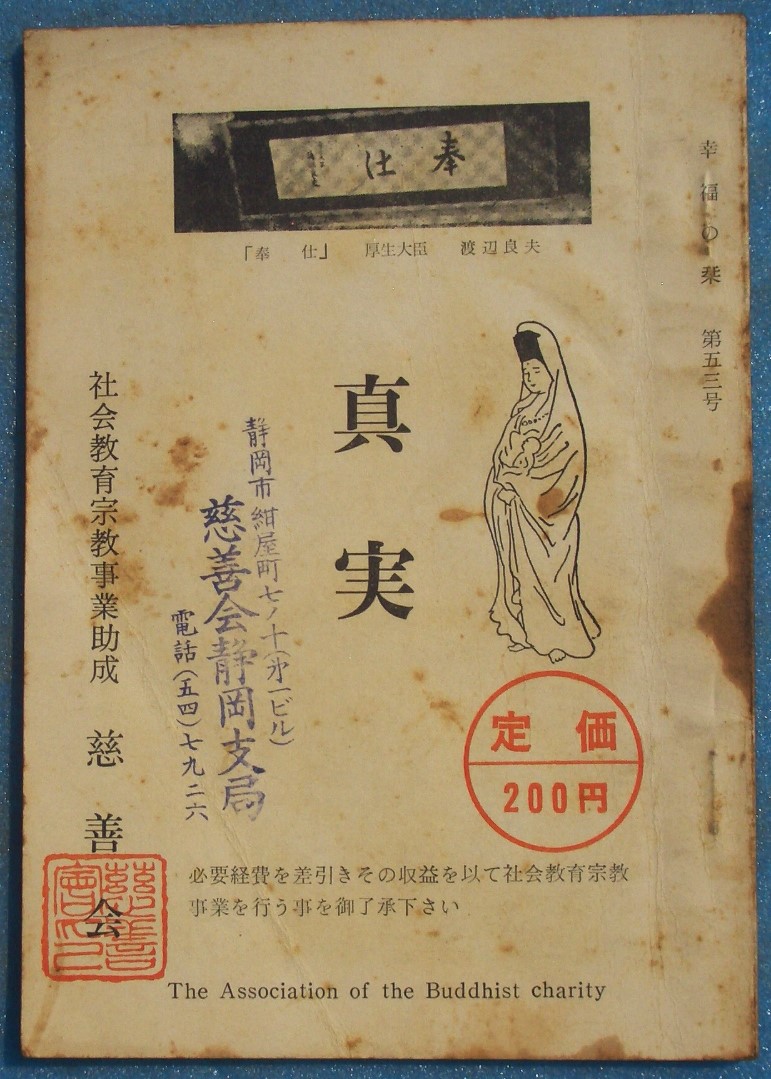 幸福の栞　第五三号
奉仕
「奉　仕」　厚生大臣　渡辺良夫
真実
静岡市紺屋町七ノ十(第一ビル)
慈善会静岡支局
電話(五四)七九二六
社会教育宗教事業助成　慈善会
定価
200円
必要経費を差引きその収益を以て社会教育宗教
事業を行う事を御了承下さい
慈善會印
The Association of the Buddhist charity